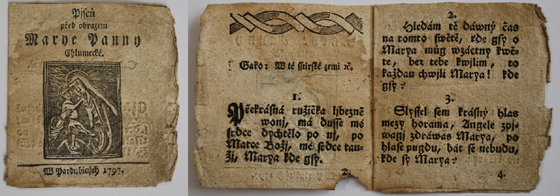 Pjseň
před obrazem
Marye Panny
Chlumecké.
W Pardubicých 1797.
Gako: W té sstirské zemi ꝛc.
1.
Překrásná růžička ljbezně
wonj, má dusse má
srdce dychtělo po nj, po
Marce Božj, mé srdce tau-
žj, Marya kde gsy.
2.
2.
Hledám tě dáwný čas
na tomto swětě, kde gsy ó
Marya můg wzáctny kwě-
te, bez tebe kwjlim, to
každau chwjli Marya! kde
gsy?
3.
Slyssel sem krásný hlas
mezy horama, Angelé zpj-
wagj zdráwas Marya, po
hlase pugdu, bát se nebudu,
kde sy Marya?
4.